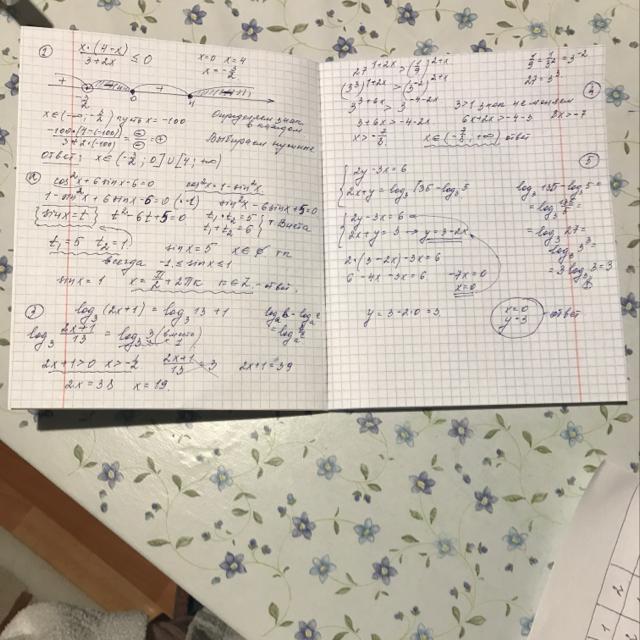 ①
x·(4-x)
3+2x ≤ 0
x=0 x=4
+ - + -
0 4
путь x = -100
Определяем знак
в каждом
Выбираем нужное
ответ:
②
cos²x + 6sinx - 6 = 0
cos²x = 1 - sin²x
1 - sin²x + 6sinx - 6 = 0 (·-1)
sin²x - 6sinx + 5 = 0
{sinx = t} t² - 6t + 5 = 0
t₁·t₂ = 5
t₁+t₂ = 6
Виета
t₁ = 5 t₂ = 1
sinx = 5 x∈∅ тк
всегда -1 ≤ sinx ≤ 1
sinx = 1 x = π/2 + 2πk k∈Z - ответ.
③
log₃ (2x+1) = log₃ 13 + 1
log₃ (2x+1)/13 = log₃ 3
2x+1 > 0
(2x+1)/13 = 3
2x+1 = 39
2x = 38 x = 19
④
27^(1+2x) > (1/9)^(2+x)
1/9 = 1/3² = 3⁻²
27 = 3³
(3³)^(1+2x) > (3⁻²)^(2+x)
3^(3+6x) > 3^(-4-2x)
3 > 1 знак не меняем
3+6x > -4-2x
6x+2x > -4-3
8x > -7
x > -7/8
x∈(-7/8; +∞) ответ
⑤
{2y - 3x = 6
{2x + y = log₃ 135 - log₃ 5
log₃ 135 - log₃ 5 =
= log₃ 135/5
= log₃ 27 =
log₃ 3³
= 3log₃ 3 = 3
{2y - 3x = 6
{2x + y = 3 → y = 3-2x
2·(3-2x) - 3x = 6
6 - 4x - 3x = 6
-7x = 0
x = 0
y = 3 - 2·0 = 3
x = 0
y = 3
- ответ